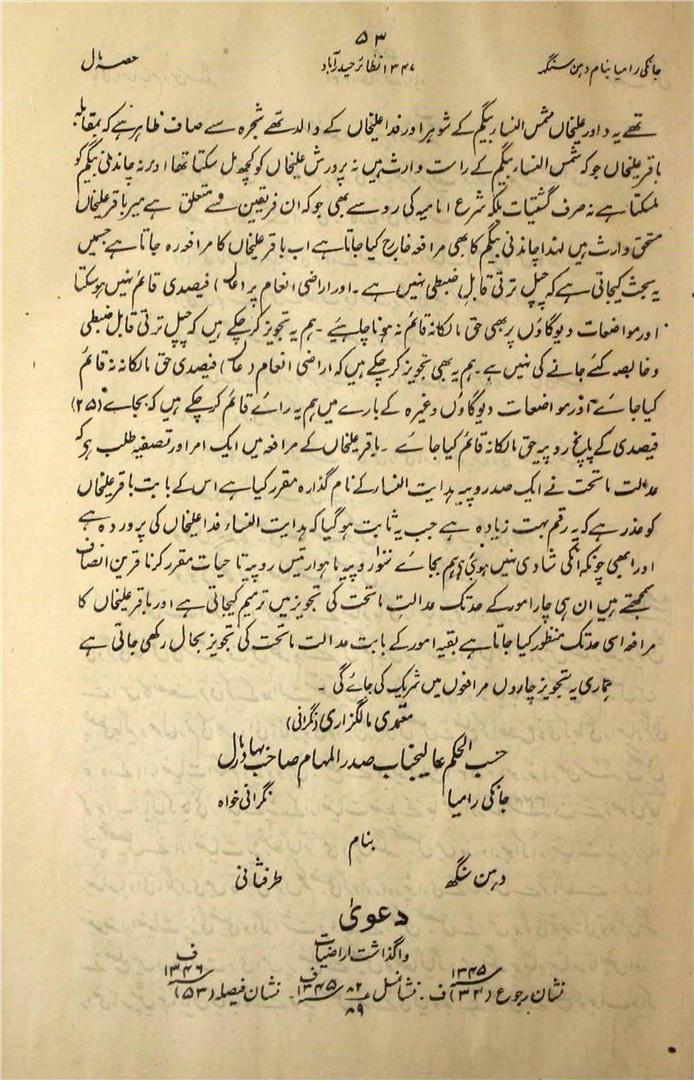 ۵۳
جانکی رامیا بنام دہرن سنگھ ۱۳۴۷ نظائر حیدرآباد حصہ مال
تھے یہ داور علیخاں شمس النساربیگم کے شوہر اور فدا علیخاں کے والد تھے شجرہ سے صاف ظاہر ہے کہ بمقابلہ
باقر علیخاں جو کہ شمس النساربیگم کے راست وارث ہیں نہ پرورش علیخاں کو کچھ مل سکتا تھا اور نہ چاندنی بیگم کو
ملسکتا ہے نہ صرف گشتیات بلکہ شرع امامیہ کی رو سے بھی جو کہ ان فریقین سے متعلق ہے میر باقر علیخاں
مستحق وارث ہیں لہذا چاندنی بیگم کا بھی مرافعہ خارج کیا جاتا ہے اب باقر علیخاں کا مرافعہ رہ جاتا ہے جسمیں
یہ بحث کیجاتی ہے کہ چیل ترتی قابل ضبطی نہیں ہے ۔ اور اراضی انعام پر فیصدی قائم نہیں ہو سکتا
اور مواضعات دیوگاؤں پر بھی حق مالکانہ قائم نہ ہونا چاہئیے ۔ ہم یہ تجویز کر چکے ہیں کہ چیل ترتی قابل ضبطی
و خالصہ کئے جانے کی نہیں ہے ۔ ہم یہ بھی تجویز کر چکے ہیں کہ اراضی انعام فیصدی حق مالکانہ نہ قائم
کیا جائے اور مواضعات دیوگاؤں وغیرہ کے بارے میں ہم یہ رائے قائم کر چکے ہیں کہ بجائے (۲۵)
فیصدی کے پانچ روپیہ حق مالکانہ قائم کیا جائے ۔ باقر علیخاں کے مرافعہ میں ایک امر اور تصفیہ طلب ہے کہ
عدالت ماتحت نے ایک صد روپیہ ہدایت النسار کے نام گذارہ مقرر کیا ہے اس کے بابت باقر علیخاں
کو عذر ہے کہ یہ رقم بہت زیادہ ہے جب یہ ثابت ہو گیا کہ ہدایت النساء فدا علیخاں کی پروردہ ہے
اور ابھی چونکہ انکی شادی نہیں ہوئی ہم بجائے سنوار روپیہ ماہوار تیس روپیہ تا حیات مقرر کرنا قرین انصاف
سمجھتے ہیں ان ہی چار امور کے حد تک عدالت ماتحت کی تجویز میں ترمیم کیجاتی ہے اور باقر علیخاں کا
مرافعہ اسی حد تک منظور کیا جاتا ہے بقیہ امور کے بابت عدالت ماتحت کی تجویز بحال رکھی جاتی ہے
ہماری یہ تجویز چاروں مرافعوں میں شریک کی جائے گی ۔
معتمدی مالگزاری (نگرانی)
حسب الحکم عالیجناب صدر المہام صاحب بہادر مال
جانکی رامیا نگرانی خواہ
بنام
دہرن سنگھ طرفثانی
دعویٰ
واگذاشت اراضیات
نشان رجوع (۳۲) ۱۳۴۵ ف ۔ نشانسل ۸۲ ۸۹ ۱۳۴۵ ف ۔ نشان فیصلہ (۵۳) ۱۳۴۶ ف